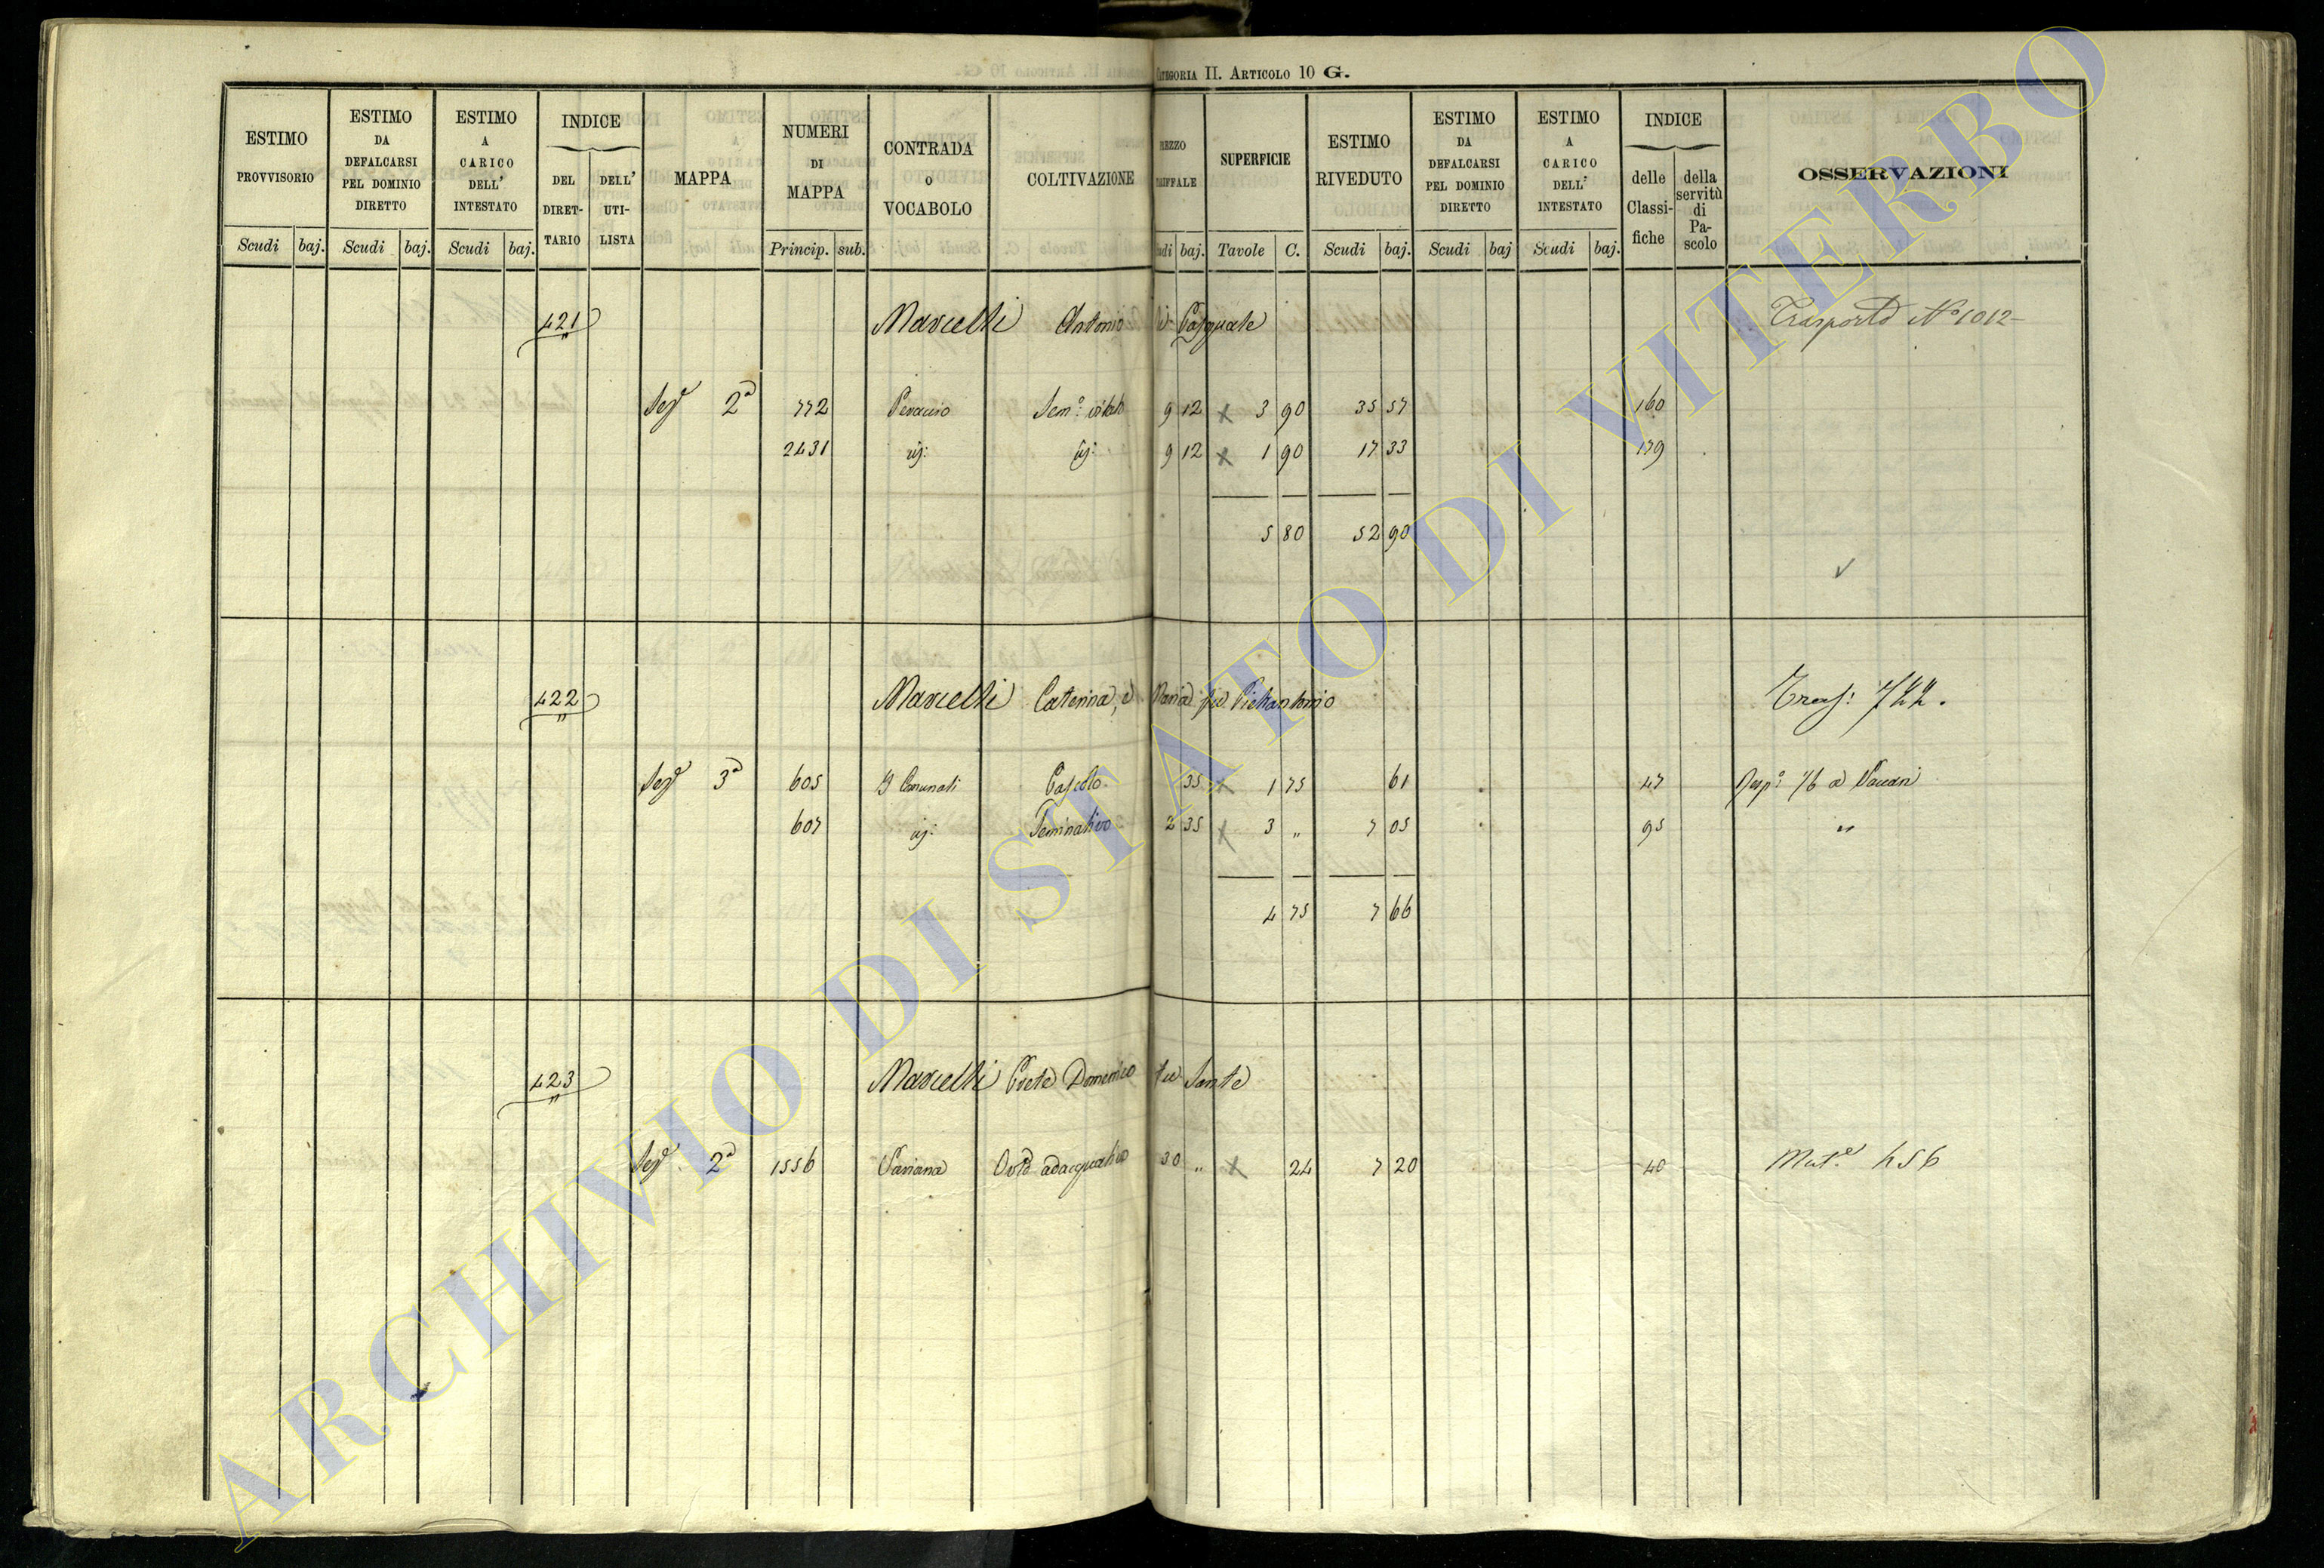 CATEGORIA II. ARTICOLO 10 G.
ESTIMO PROVVISORIO
Scudi baj.
ESTIMO DA DEFALCARSI PEL DOMINIO DIRETTO
Scudi baj.
ESTIMO A CARICO DELL' INTESTATO
Scudi baj.
INDICE
DEL DIRET-
TARIO
DELL' UTI-
LISTA
MAPPA
NUMERI DI MAPPA
Princip. sub.
CONTRADA O VOCABOLO
COLTIVAZIONE
REZZO
RIFFALE
udi baj.
SUPERFICIE
Tavole C.
ESTIMO RIVEDUTO
Scudi baj.
ESTIMO DA DEFALCARSI PEL DOMINIO DIRETTO
Scudi baj
ESTIMO A CARICO DELL' INTESTATO
Scudi baj.
INDICE
delle Classi-
fiche
della servitù di Pa-
scolo
OSSERVAZIONI
421 Marcelli Antonio di Pasquale Trasporto N° 1012
Sez.e 2a 772 Sem.o vitato 9 12 x 3 90 35 57 160
2431 id: id: 9 12 x 1 90 17 33 179
5 80 52 90
422 Marcelli Caterina, e Maria fu Pietrantonio Tras: 722.
Sez.e 3a 605 Pascolo 35 x 1 75 61 47
607 id: Seminativo 2 35 x 3 " 7 05 95 "
4 75 7 66
423 Marcelli Prete Domenico fu Sante
Sez.e 2a 1556 Orto adacquativo 30 " x 24 7 20 40 Mat.e 656
ARCHIVIO DI STATO DI VITERBO